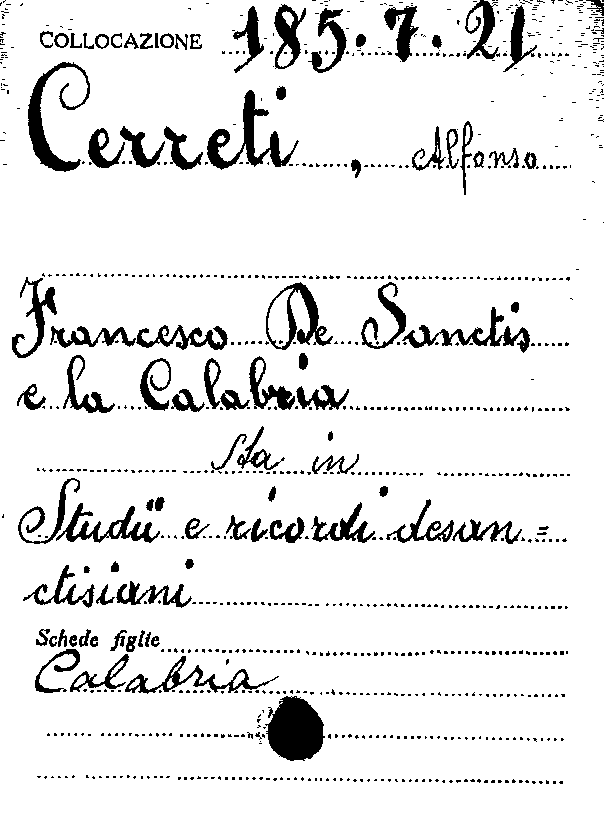 COLLOCAZIONE 185.7.21
Cerreti, Alfonso
Francesco De Sanctis
e la Calabria
Sta in
Studii e ricordi desan=
ctisiani
Schede figlie
Calabria